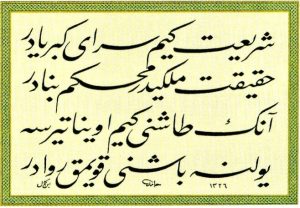 شریعت کیم سرای کبریادر
حقیقت ملکیدر محکم بنادر
آنك طاشنی کیم اویناتیرسه
یولنه باشنی قویمق روادر
١٣٢٦